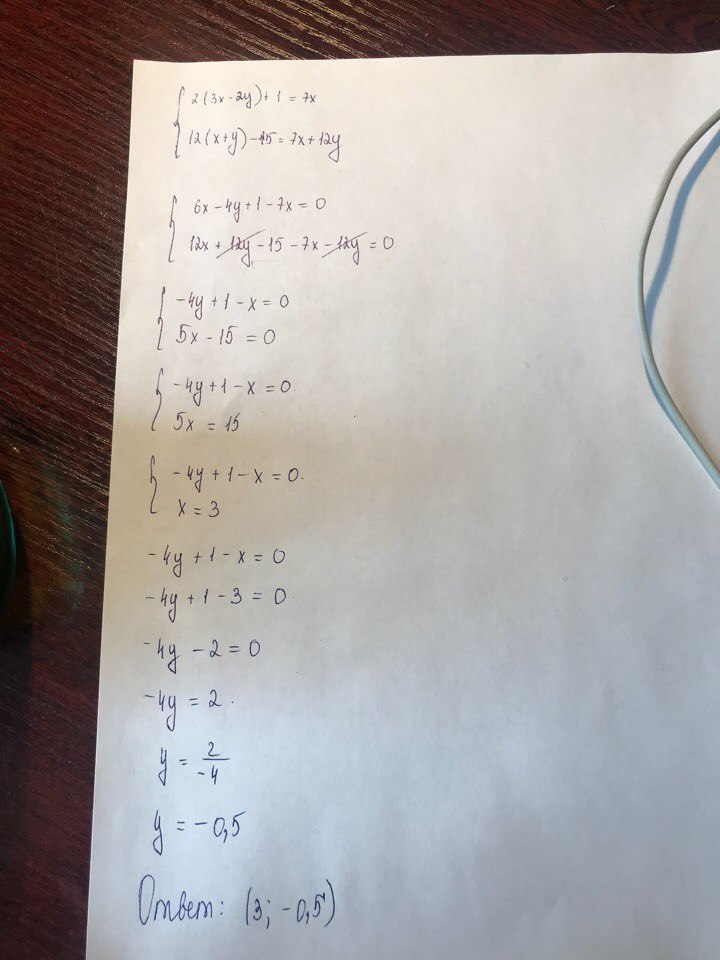 2(3x-2y)+1=7x
12(x+y)-15=7x+12y
6x-4y+1-7x=0
12x+12y-15-7x-12y=0
-4y+1-x=0
5x-15=0
-4y+1-x=0
5x=15
-4y+1-x=0.
x=3
-4y+1-x=0
-4y+1-3=0
-4y-2=0
-4y=2.
y=2/-4
y=-0,5
Ответ: (3; -0,5)